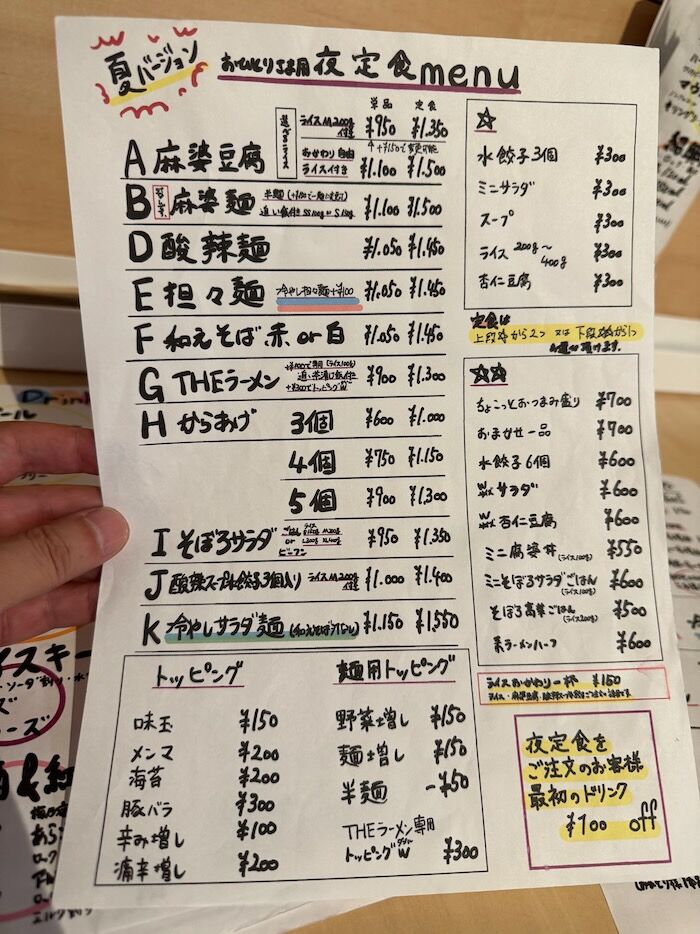 夏バージョン
おひとりさま用 夜定食 menu
単品 定食
選べるライス
ライスM200g付き ¥950 ¥1.350
↑+¥150で変更可能
A 麻婆豆腐
おかわり自由
ライス付き ¥1.100 ¥1.500
B 麻婆麺 ¥1.100 ¥1.500
D 酸辣麺 ¥1.050 ¥1.450
E 担々麺 冷やし担々麺+¥100 ¥1.050 ¥1.450
F 和えそば 赤 or 白 ¥1.050 ¥1.450
G THEラーメン ¥900 ¥1.300
H からあげ 3個 ¥600 ¥1.000
4個 ¥750 ¥1.150
5個 ¥900 ¥1.300
I そぼろサラダ ¥950 ¥1.350
or
ビーフン
J 酸辣スープ水餃子3個入り ライスM200g付 ¥1.000 ¥1.400
K 冷やしサラダ麺 (和えそば/なし) ¥1.150 ¥1.550
トッピング
味玉 ¥150
メンマ ¥200
海苔 ¥200
豚バラ ¥300
辛み増し ¥100
痛辛増し ¥200
麺用トッピング
野菜増し ¥150
麺増し ¥150
半麺 -¥50
THEラーメン専用
トッピングW ¥300
☆
水餃子3個 ¥300
ミニサラダ ¥300
スープ ¥300
ライス 200g〜400g ¥300
杏仁豆腐 ¥300
定食は
上段枠から2つ 又は 下段枠から1つ
お選び頂けます。
☆☆
ちょこっとおつまみ盛り ¥700
おまかせ一品 ¥700
水餃子6個 ¥600
Wサラダ ¥600
W杏仁豆腐 ¥600
ミニ麻婆丼(ライス100g) ¥550
ミニそぼろサラダごはん(ライス100g) ¥600
そぼろ高菜ごはん(ライス200g) ¥500
素ラーメンハーフ ¥600
ライスおかわり一杯 ¥150
夜定食を
ご注文のお客様
最初のドリンク
¥100 off